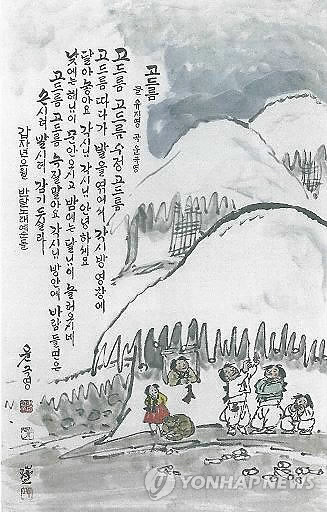 고드름
글 유지영 곡 윤극영
고드름 고드름 수정 고드름
고드름 따다가 발을 엮어서 각시방 영창에
달아놓아요 각시님 각시님 안녕하세요
낮에는 해님이 문안오시고 밤에는 달님이 놀러오시네
고드름 고드름 녹지말아요 각시님 방안에 바람들면은
손시려 발시려 감기드실라
갑자년 반달노래
윤극영
YONHAP NEWS